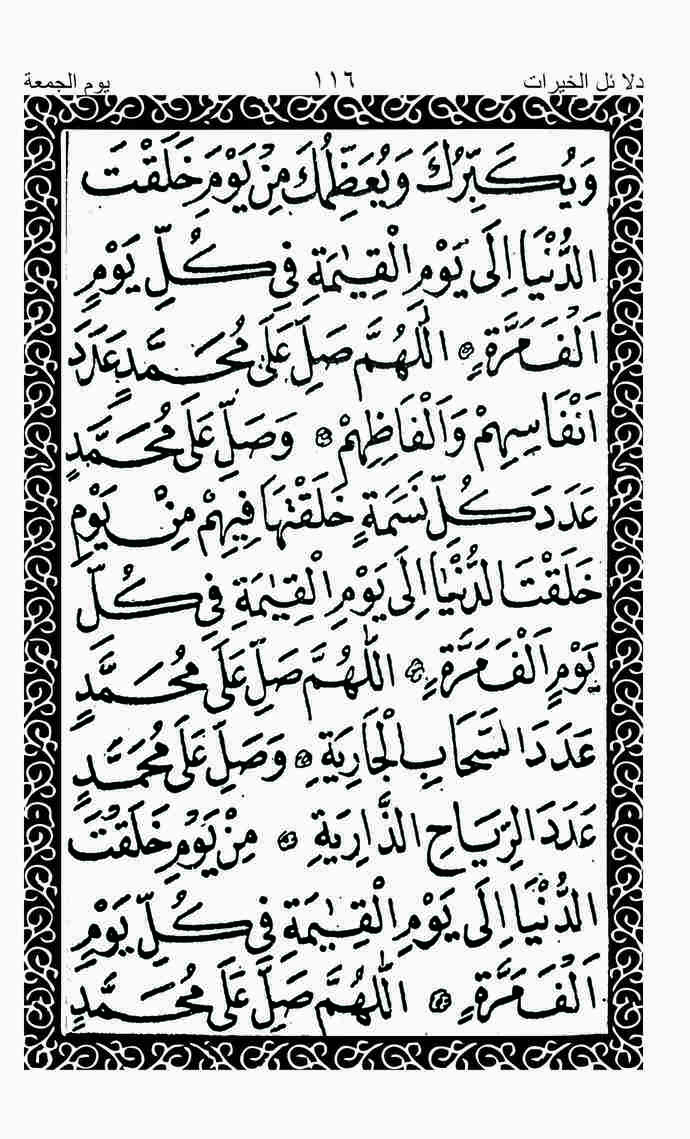 دلائل الخيرات ١١٦ يوم الجمعة
وَيُكَبِّرُكَ وَيُعَظِّمُكَ مِنْ يَوْمِ خَلَقْتَ
الدُّنْيَا اِلَى يَوْمِ الْقِيٰمَةِ فِي كُلِّ يَوْمٍ
اَلْفَ مَرَّةٍ اَللّٰهُمَّ صَلِّ عَلَى مُحَمَّدٍ عَدَدَ
اَنْفَاسِهِمْ وَاَلْفَاظِهِمْ وَصَلِّ عَلَى مُحَمَّدٍ
عَدَدَ كُلِّ نَسَمَةٍ خَلَقْتَهَا فِيهِمْ مِنْ يَوْمِ
خَلَقْتَ الدُّنْيَا اِلَى يَوْمِ الْقِيٰمَةِ فِي كُلِّ
يَوْمٍ اَلْفَ مَرَّةٍ اَللّٰهُمَّ صَلِّ عَلَى مُحَمَّدٍ
عَدَدَ السَّحَابِ الْجَارِيَةِ وَصَلِّ عَلَى مُحَمَّدٍ
عَدَدَ الرِّيَاحِ الذَّارِيَةِ مِنْ يَوْمِ خَلَقْتَ
الدُّنْيَا اِلَى يَوْمِ الْقِيٰمَةِ فِي كُلِّ يَوْمٍ
اَلْفَ مَرَّةٍ اَللّٰهُمَّ صَلِّ عَلَى مُحَمَّدٍ